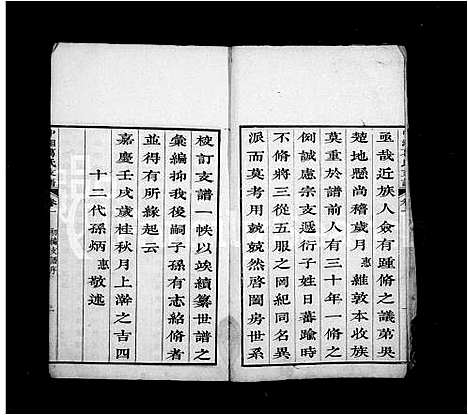 亟哉近族人僉有踵修之議第吳
楚地懸尚稽歲月惠維敦本收族
莫重於譜前人有三十年一修之
例誠慮宗支遞衍子姓日蕃踰時
不脩將從五服之罔紀同名異
派而莫考用兢兢然啓閩房世系
校訂支譜一帙以竢續纂世譜之
彙編抑我後嗣子孫有志紹脩者
並得有所緣起云
嘉慶壬戌歲桂秋月上澣之吉四
十二代孫炳惠敬述
卷一
初編支譜序